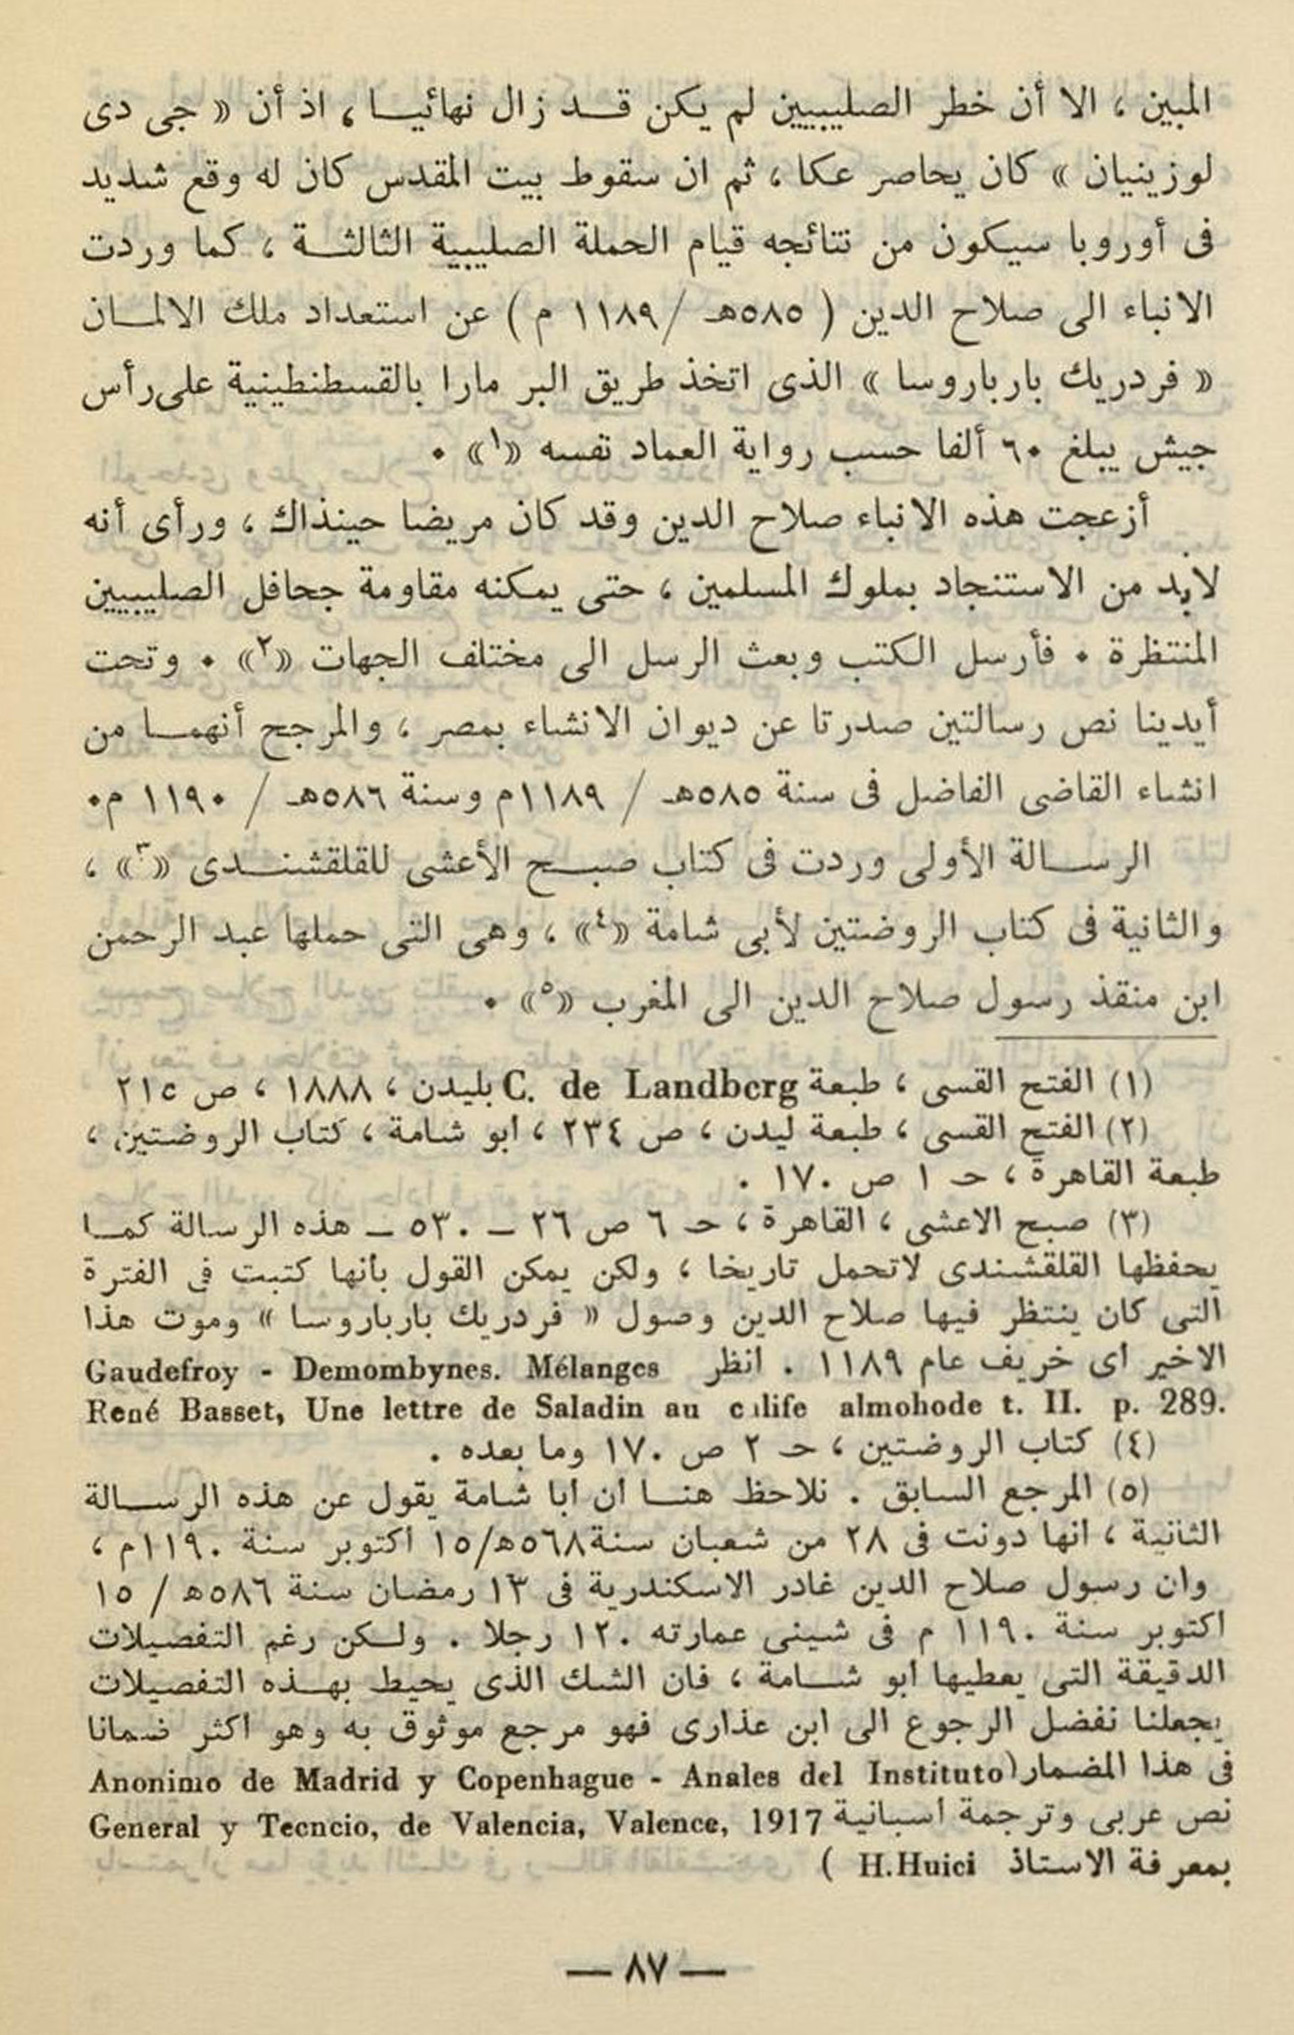 المبين ، الا أن خطر الصليبيين لم يكن قـــد زال نهائيـــا ، اذ أن « جى دى
لوزينيان » كان يحاصر عكا ، ثم ان سقوط بيت المقدس كان له وقع شديد
فى أوروبا سيكون من نتائجه قيام الحملة الصليبية الثالثـــة ، كما وردت
الانباء الى صلاح الدين ( ٥٨٥هـ /١١٨٩ م ) عن استعداد ملك الالمـــان
« فردريك بارباروسا » الذى اتخذ طريق البر مارا بالقسطنطينية على رأس
جيش يبلغ ٦٠ ألفا حسب رواية العماد نفسه «١» .
أزعجت هذه الانباء صلاح الدين وقد كان مريضا حينذاك ، ورأى أنه
لابد من الاستنجاد بملوك المسلمين ، حتى يمكنه مقاومة جحافل الصليبيين
المنتظرة . فأرسل الكتب وبعث الرسل الى مختلف الجهات «٢» . وتحت
أيدينا نص رسالتين صدرتا عن ديوان الانشاء بمصر ، والمرجح أنهمـــا من
انشاء القاضى الفاضل فى سنة ٥٨٥هـ / ١١٨٩م وسنة ٥٨٦هـ / ١١٩٠ م.
الرســـالة الأولى وردت فى كتاب صبـــح الأعشى للقلقشنـــدى «٣» ،
والثانية فى كتاب الروضتين لأبى شامة «٤» ، وهى التى حملها عبد الرحمن
ابن منقذ رسول صلاح الدين الى المغرب «٥» .
(١) الفتح القسى ، طبعة C. de Landberg بليدن ، ١٨٨٨ ، ص ٢١٥
(٢) الفتح القسى ، طبعة ليدن ، ص ٢٣٤ ، أبو شامة ، كتاب الروضتين ،
طبعة القاهرة ، حـ ١ ص ١٧٠ .
(٣) صبح الاعشى ، القاهرة ، حـ ٦ ص ٢٦ – ٥٣٠ – هذه الرسالة كمـــا
يحفظها القلقشندى لاتحمل تاريخا ، ولكن يمكن القول بأنها كتبت فى الفترة
التى كان ينتظر فيها صلاح الدين وصول « فردريك بارباروسا » وموت هذا
الاخير اى خريف عام ١١٨٩ . انظر Gaudefroy - Demombynes. Mélanges
René Basset, Une lettre de Saladin au calife almohode t. II. p. 289.
(٤) كتاب الروضتين ، حـ ٢ ص ١٧٠ وما بعده .
(٥) المرجع السابق . نلاحظ هنـــا ان ابا شامة يقول عن هذه الرســـالة
الثانية ، انها دونت فى ٢٨ من شعبان سنة ٥٦٨هـ/١٥ اكتوبر سنة ١١٩٠م ،
وان رسول صلاح الدين غادر الاسكندرية فى ١٣ رمضان سنة ٥٨٦هـ / ١٥
اكتوبر سنة ١١٩٠ م فى شينى عمارته ١٢٠ رجلا . ولـــكن رغم التفصيلات
الدقيقة التى يعطيها ابو شـــامة ، فان الشك الذى يحيط بهـــذه التفصيلات
يجعلنا نفضل الرجوع الى ابن عذارى فهو مرجع موثوق به وهو اكثر ضمانا
فى هذا المضمار (Anonimo de Madrid y Copenhague - Anales del Instituto
نص عربى وترجمة اسبانية General y Tecncio, de Valencia, Valence, 1917
بمعرفة الاستاذ H.Huici )
— ٨٧ —